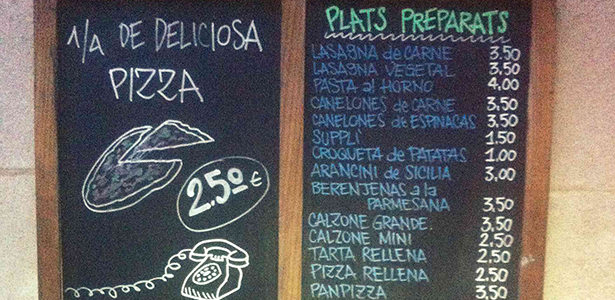 1/A DE DELICIOSA
PIZZA
2.50 €
PLATS PREPARATS
LASAGNA de CARNE 3.50
LASAGNA VEGETAL 3.50
PASTA al HORNO 4,00
CANELONES de CARNE 3,50
CANELONES de ESPINACAS 3.50
SUPPLÌ 1.50
CROQUETA de PATATAS 1.00
ARANCINI de SICILIA 3,00
BERENJENAS a la
PARMESANA 3,50
CALZONE GRANDE. 3,50
CALZONE MINI 2.50
TARTA RELLENA 2,50
PIZZA RELLENA 2.50
PANPIZZA 3,50